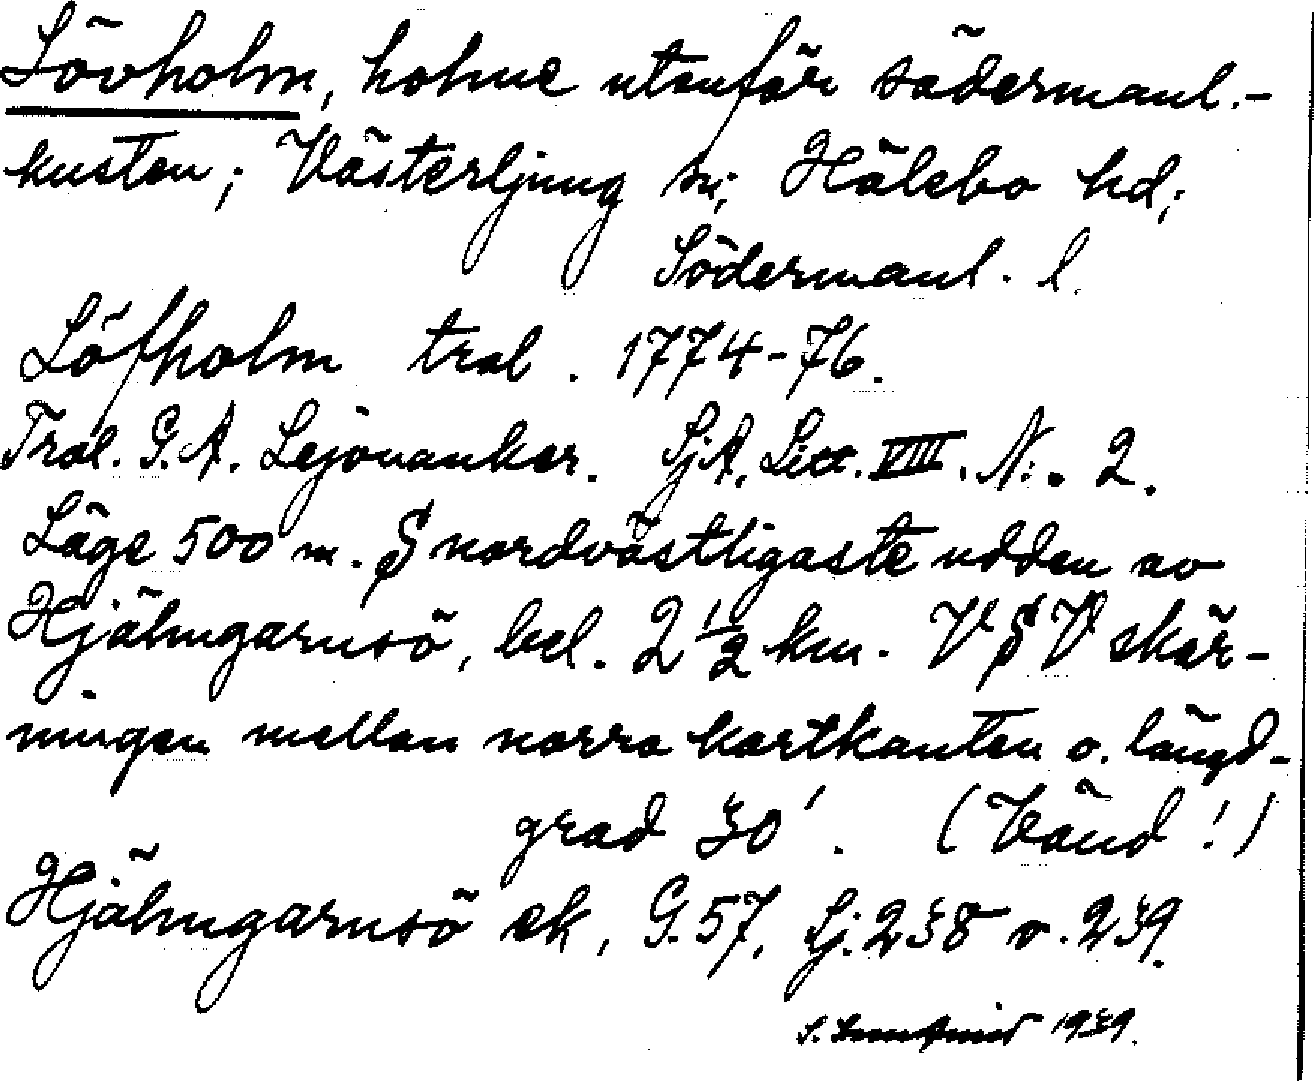 Lövholm, holme utanför södermanl.-
kusten; Västerljung sn; Hölebo hd;
Södermanl. l.
Löfholm tral. 1774-76.
Tral. G. A. Lejonanker. SjA, Litt. VIII. N:o 2.
Läge 500 m. S nordvästligaste udden av
Hjälmgarnsö, bel. 2 1/2 km. VSV skär-
ningen mellan norra kartkanten o. längd-
grad 30'. (Vänd!)
Hjälmgarnsö ek, G. 57, Sj. 238 o. 239.
S. 1939.